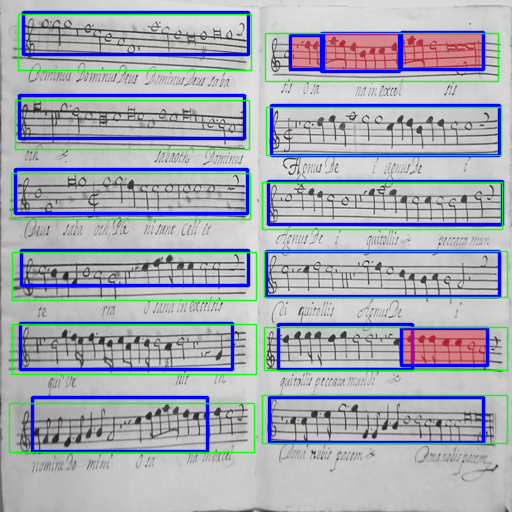 Dominus Dominus Deus Dominus Deus saba
oth sabaoth Dominus
Deus saba oth Ple ni sunt celi et
te rra O sana in excelsis
qui ve nit in
nomine Do mini O sa na in excel
sis O sa na in excel sis
Agnus De i agnus De i
Agnus De i qui tollis peccata mun
Di qui tollis Agnus De i
qui tollis peccata mundi
Dona nobis pacem Dona nobis pacem